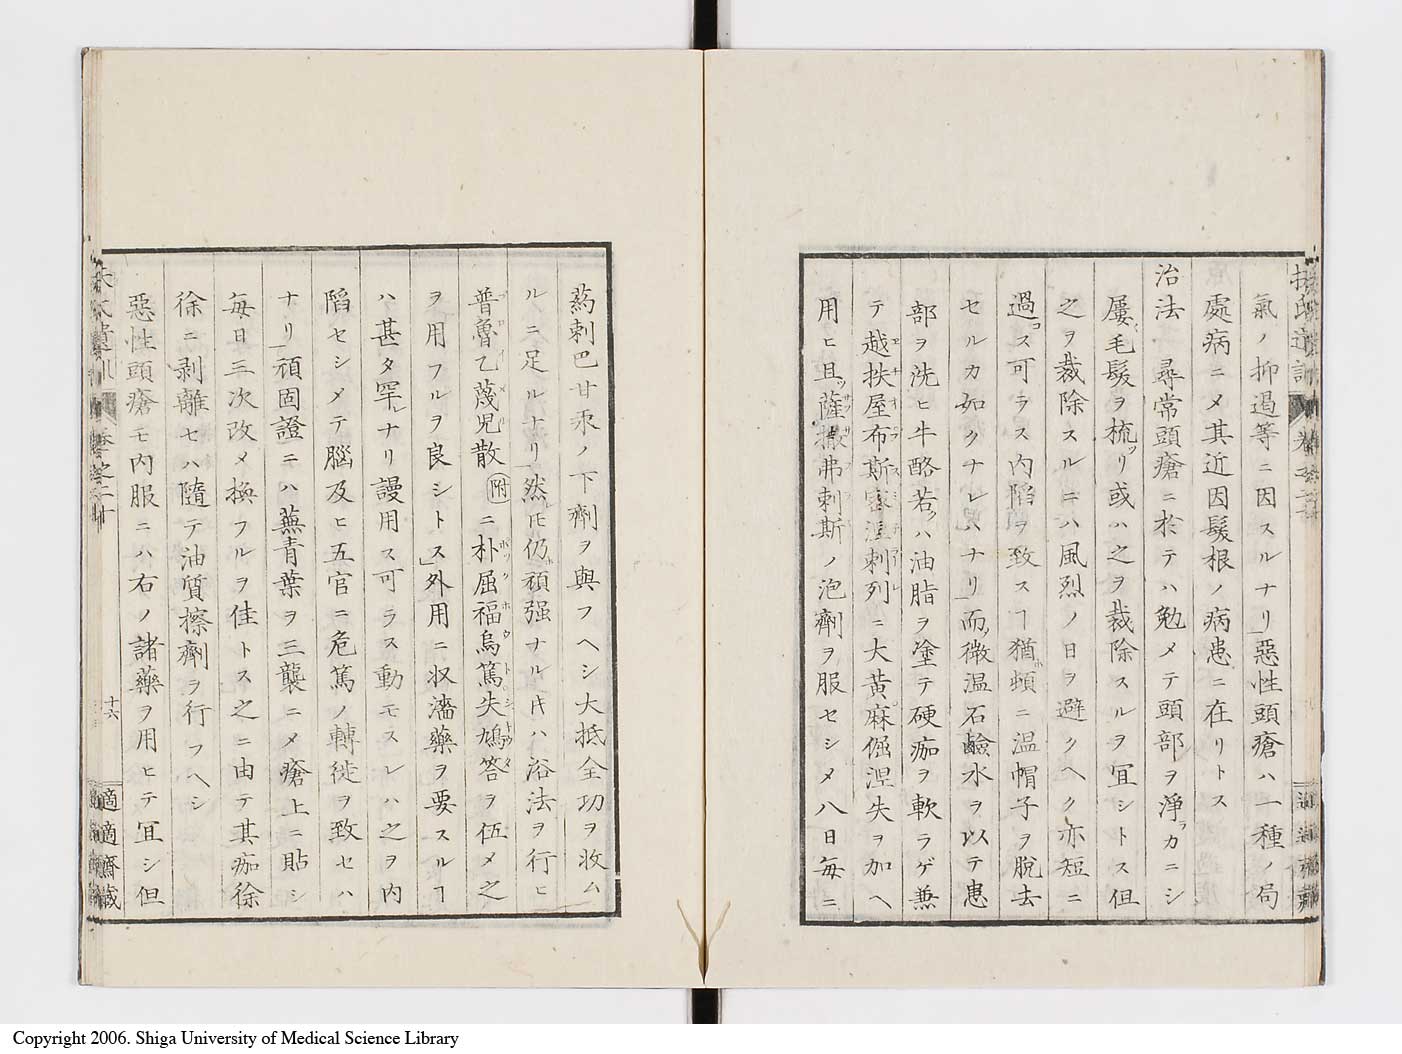 氣ノ抑遏等ニ因スルナリ」惡性頭瘡ハ一種ノ局
處病ニメ其近因髮根ノ病患ニ在リトス
治法 尋常頭瘡ニ於テハ勉メテ頭部ヲ淨カニシ
屢毛髮ヲ梳リ或ハ之ヲ裁除スルヲ冝シトス但
之ヲ裁除スルニハ風烈ノ日ヲ避クヘク亦短ニ
過ス可ラス内陷ヲ致スヿ猶頓ニ温帽子ヲ脫去
セルカ如クナレハナリ」而微温石鹼水ヲ以テ患
部ヲ洗ヒ牛酪若ハ油脂ヲ塗テ硬痂ヲ軟ラゲ兼
テ越扶屋布斯密涅刺列ニ大黃麻倔涅失ヲ加ヘ
用ヒ且薩撒弗刺斯ノ泡劑ヲ服セシメ八日每ニ
葯刺巴甘汞ノ下劑ヲ與フヘシ大抵全功ヲ收ム
ルニ足ルナリ」然𪜈仍頑强ナル𪜈ハ浴法ヲ行ヒ
普魯乙蔑児散附ニ朴屈福烏篤失鳩答ヲ伍メ之
ヲ用フルヲ良シトス」外用ニ収濇藥ヲ要スルヿ
ハ甚タ罕ナリ謾用ス可ラス動モスレハ之ヲ内
陷セシメテ腦及ヒ五官ニ危篤ノ轉徙ヲ致セハ
ナリ」頑固證ニハ蕪青葉ヲ三襲ニメ瘡上ニ貼シ
每日三次改メ換フルヲ佳トス之ニ由テ其痂徐
徐ニ剥離セハ隨テ油質擦劑ヲ行フヘシ
惡性頭瘡モ内服ニハ右ノ諸藥ヲ用ヒテ冝シ但
十六
適適齋藏
Copyright 2006. Shiga University of Medical Science Library